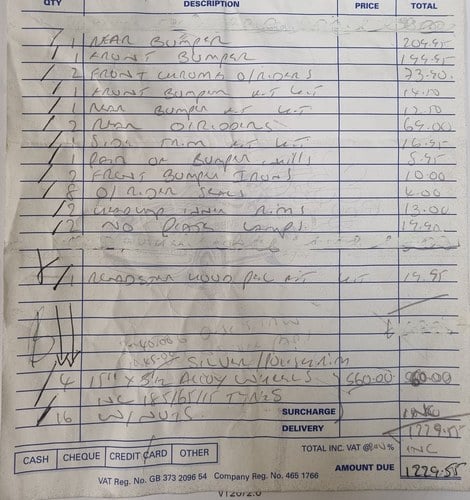 QTY DESCRIPTION PRICE TOTAL
1 REAR BUMPER 209.95
1 FRONT BUMPER 199.95
2 FRONT CHROME O/RIDERS 73.90
1 FRONT BUMPER KIT 14.10
1 REAR BUMPER KIT 12.50
2 REAR O/RIDERS 69.00
1 SIDE TRIM KIT 16.95
1 PAIR OF BUMPER 5.95
2 FRONT BUMPER IRONS 10.00
8 O/RIDER SEALS 4.00
2 HEADLAMP INNER RIMS 13.00
2 NO PLATE LAMPS 19.90
1 ROADSTAR HOOD KIT 19.95
SILVER/POLISH RIM
4 15" x 5 1/2 ALLOY WHEELS 560.00 560.00
INC 185/65/15 TYRES
16 W/NUTS SURCHARGE INC
DELIVERY 1229.55
CASH CHEQUE CREDIT CARD OTHER TOTAL INC. VAT @ % INC
AMOUNT DUE 1229.55
VAT Reg. No. GB 373 2096 54 Company Reg. No. 465 1766